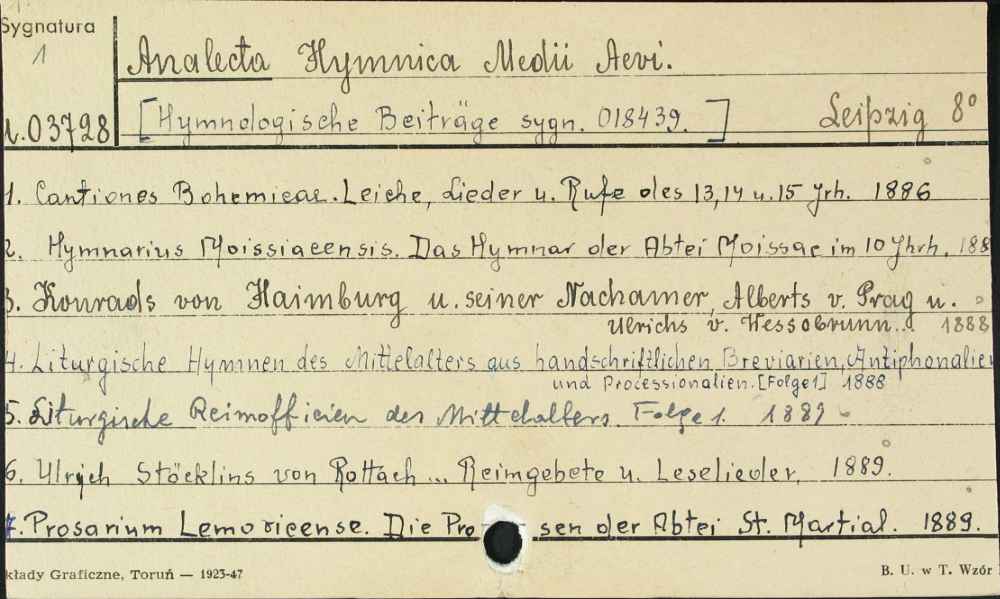 Sygnatura
1
Analecta Hymnica Medii Aevi.
[Hymnologische Beiträge sygn. 018439.] Leipzig 8°
03728
1. Cantiones Bohemicae. Leiche, Lieder u. Rufe des 13, 14 u. 15 Jrh. 1886
2. Hymnarius Moissiacensis. Das Hymnar der Abtei Moissac im 10 Jhrh. 188
3. Konrads von Haimburg u. seiner Nachamer, Alberts v. Prag u.
Ulrichs v. Wessobrunn. 1888
4. Liturgische Hymnen des Mittelalters aus handschriftlichen Breviarien, Antiphonalien
und Processionalien. [Folge 1] 1888
5. Liturgische Reimofficien des Mittelalters. Folge 1. 1889
6. Ulrich Stöcklins von Rottach... Reimgebete u. Leselieder, 1889.
7. Prosarium Lemovicense. Die Pro sen der Abtei St. Martial. 1889.
kłady Graficzne, Toruń — 1923-47 B. U. w T. Wzór